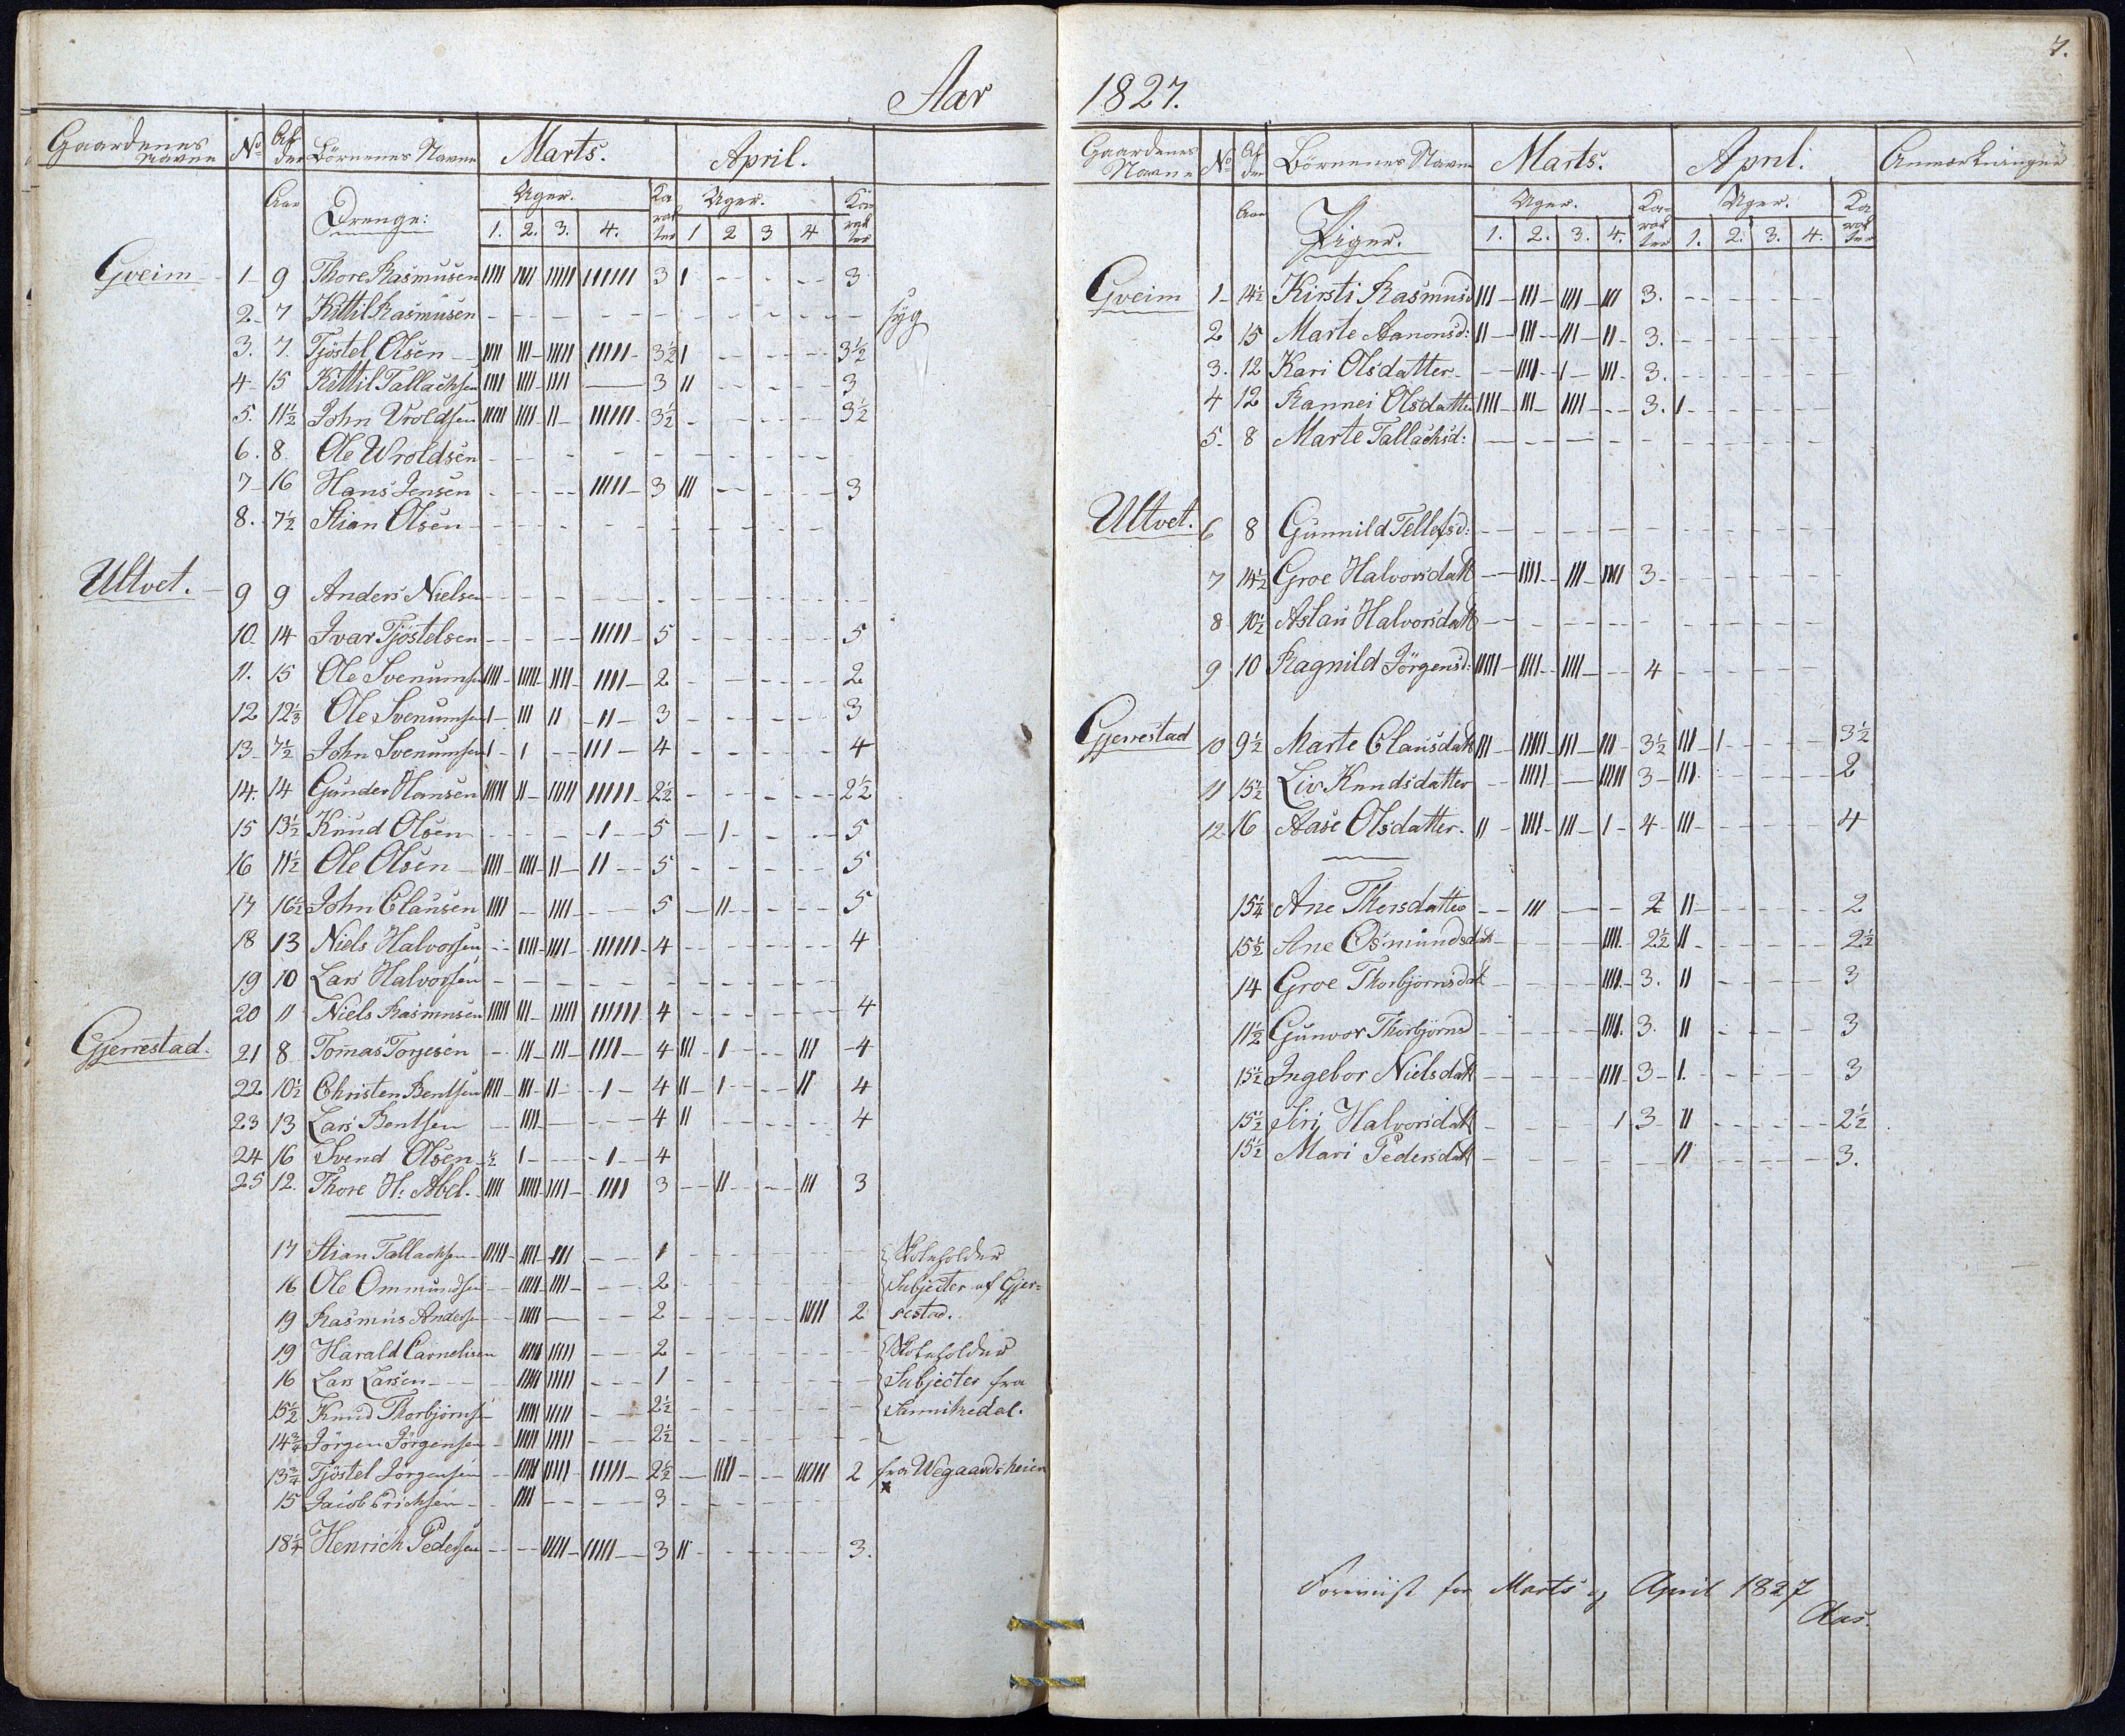 Aar
Gaardenes Navne No Alder Börnenes Navne Marts. April.
Aar Drenge: Uger. Karakter Uger. Karakter
1. 2. 3. 4. 1 2 3 4
Gveim 1 9 Thore Rasmusen IIII IIII IIIII IIIIII 3 I - - - 3
2 7 Kittil Rasmusen - - - - - - - - syg
3. 7. Tjöstel Olsen IIII III IIIII IIIII 3½ I - - - 3½
4 15 Kittil Tallachsen IIII IIII IIII - 3 II - - - 3
5. 11½ John Vroldsen IIIII IIII II IIIIII 3½ - - - - 3½
6. 8. Ole Wroldsen - - - - - - - -
7 16 Hans Jensen - - - IIIII 3 III - - - 3
8. 7½ Stian Olsen - - - - - - - -
Ultvet. 9 9 Anders Nielsen - - - - - - - -
10. 14 Ivar Tjöstelsen - - - IIIII 5 - - - - 5
11. 15 Ole Svenumsen IIII IIIII IIII IIII 2 - - - - 2
12 12⅓ Ole Svenumsen I III II II 3 - - - - 3
13 7½ John Svenumsen I I - III 4 - - - - 4
14. 14 Gunder Hansen IIIII II IIIII IIIII 2½ - - - - 2½
15 13½ Knud Olsen - - - I 5 - I - - 5
16 11½ Ole Olsen IIII IIII II II 5 - - - - 5
17 16½ John Clausen IIII - IIII - 5 - II - - 5
18 13 Niels Halvorsen - IIII IIII IIIIII 4 - - - - 4
19 10 Lars Halvorsen - - - - - - - -
20 11 Niels Rasmusen IIIII III IIIII IIIIII 4 - - - - 4
Gjerrestad. 21 8 Tomas Torjesen - III III IIII 4 III I - III 4
22 10½ Christen Bentsen IIII III II I 4 II I - II 4
23 13 Lars Bentsen - IIII - - 4 II - - - 4
24 16 Svend Olsen ½ I - I 4
25 12. Thore H: Abel. IIII IIIII IIII IIII 3 - II - III 3
17 Stian Tallachsen IIIII IIII III - 1 - - - - Skoleholder
16 Ole Ommundsen - IIII IIII - 2 - - - - Subjecter af Gjer=
19 Rasmus Andersen - IIII - - 2 - - - IIIII 2 restad.
19 Harald Carnelisen IIIII IIIII - 2 - - - - Skoleholder
16 Lars Larsen - IIIII IIIII - 1 - - - - Subjecter fra
15½ Knud Thorbjornsen - IIIII IIIII - 2½ - - - - Sannikedal.
14¾ Jörgen Jörgensen - IIIII IIIII - 2½ - - - -
13¾ Tjöstel Jorgensen - IIIII IIIII IIIII 2½ - IIII - IIIIII 2 fra Wegaardsheien
15 Jacob Erichsen - IIII - - 3 - - - - x
18¼ Henrich Pedersen - - IIIII IIIII 3 II - - - 3.
7.
1827.
Gaardenes Navne No Alder Börnenes Navne Marts. April. Anmærkninger
Aar Piger. Uger. Karakter Uger. Karakter
1. 2. 3. 4. 1. 2. 3. 4.
Gveim 1 14½ Kirsti Rasmusd III III IIII III 3. - - - -
2 15 Marte Aanonsd: II III III II 3. - - - -
3. 12 Kari Olsdatter - IIII I III 3. - - - -
4 12 Rannei Olsdatter IIII III IIII - 3. I - - -
5. 8 Marte Tallachsd: - - - - - - - -
Ultvet. 6 8 Gunnild Tellefsd: - - - - - - - -
7 14½ Groe Halvorsdatt - IIII III IIII 3 - - - -
8 10½ Aslau Halvorsdatt - - - - - - - -
9 10 Ragnild Jörgensd: IIIII IIII IIII - 4 - - - -
Gjerrestad 10 9½ Marte Clausdatt III IIIII III III 3½ III I - - 3½
11 15½ Liv Knudsdatter - IIIII - IIIII 3 III - - - 2
12 16 Aase Olsdatter. II IIII III I 4 III - - - 4
15¼ Ane Thorsdatter - III - - 2 II - - - 2
15½ Ane Osmundsdatt - - - IIII 2½ II - - - 2½
14 Groe Thorbjornsdat - - - IIII 3. II - - - 3
11½ Gunvor Thorbjörnsd - - - IIII 3. II - - - 3
15½ Ingebor Nielsdatt - - - IIII 3 I. - - - 3
15½ Siri Halvorsdatt - - - I 3 II - - - 2½
15½ Mari Pedersdatt - - - - II - - - 3.
Foreviist for Marts og April 1827
Aas.